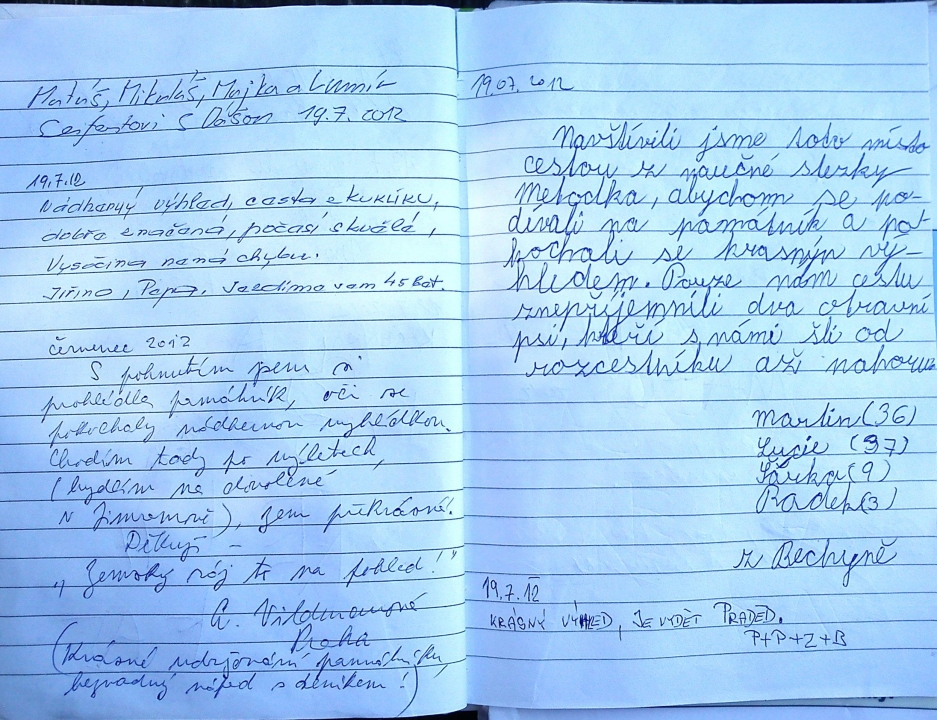 Matúš, Mikuláš, Majka a Lumír
Seifertovi s Dášou 19.7.2012
19.7.12
Nádherný výhled, cesta z Kuklíku,
dobře značená, počasí skvělé,
Vysočina nemá chybu.
Jiřina, Pepa,
červenec 2012
S pohnutím jsem si
prohlédla památník, oči se
pokochaly nádhernou vyhlídkou.
Chodím tady po výletech,
(bydlím na dovolené
v Jimramově), zem překrásná!
Děkuji –
„Zemský ráj to na pohled!"
A. Vildmanová
Praha
(Krásné udržování památníku,
bezvadný nápad s deníkem!)
19.07.2012
Navštívili jsme toto místo
cestou z naučné stezky
Metodka, abychom se po-
dívali na památník a po-
kochali se krasným vý-
hledem. Pouze nám cestu
znepříjemnili dva otravní
psi, kteří s námi šli od
rozcestníku až nahoru.
Martin (36)
Lucie (37)
Šárka (9)
Radek (3)
z Bechyně
19.7.12
KRÁSNÝ VÝHLED, JE VYDĚT PRADĚD.
P+P+Z+B